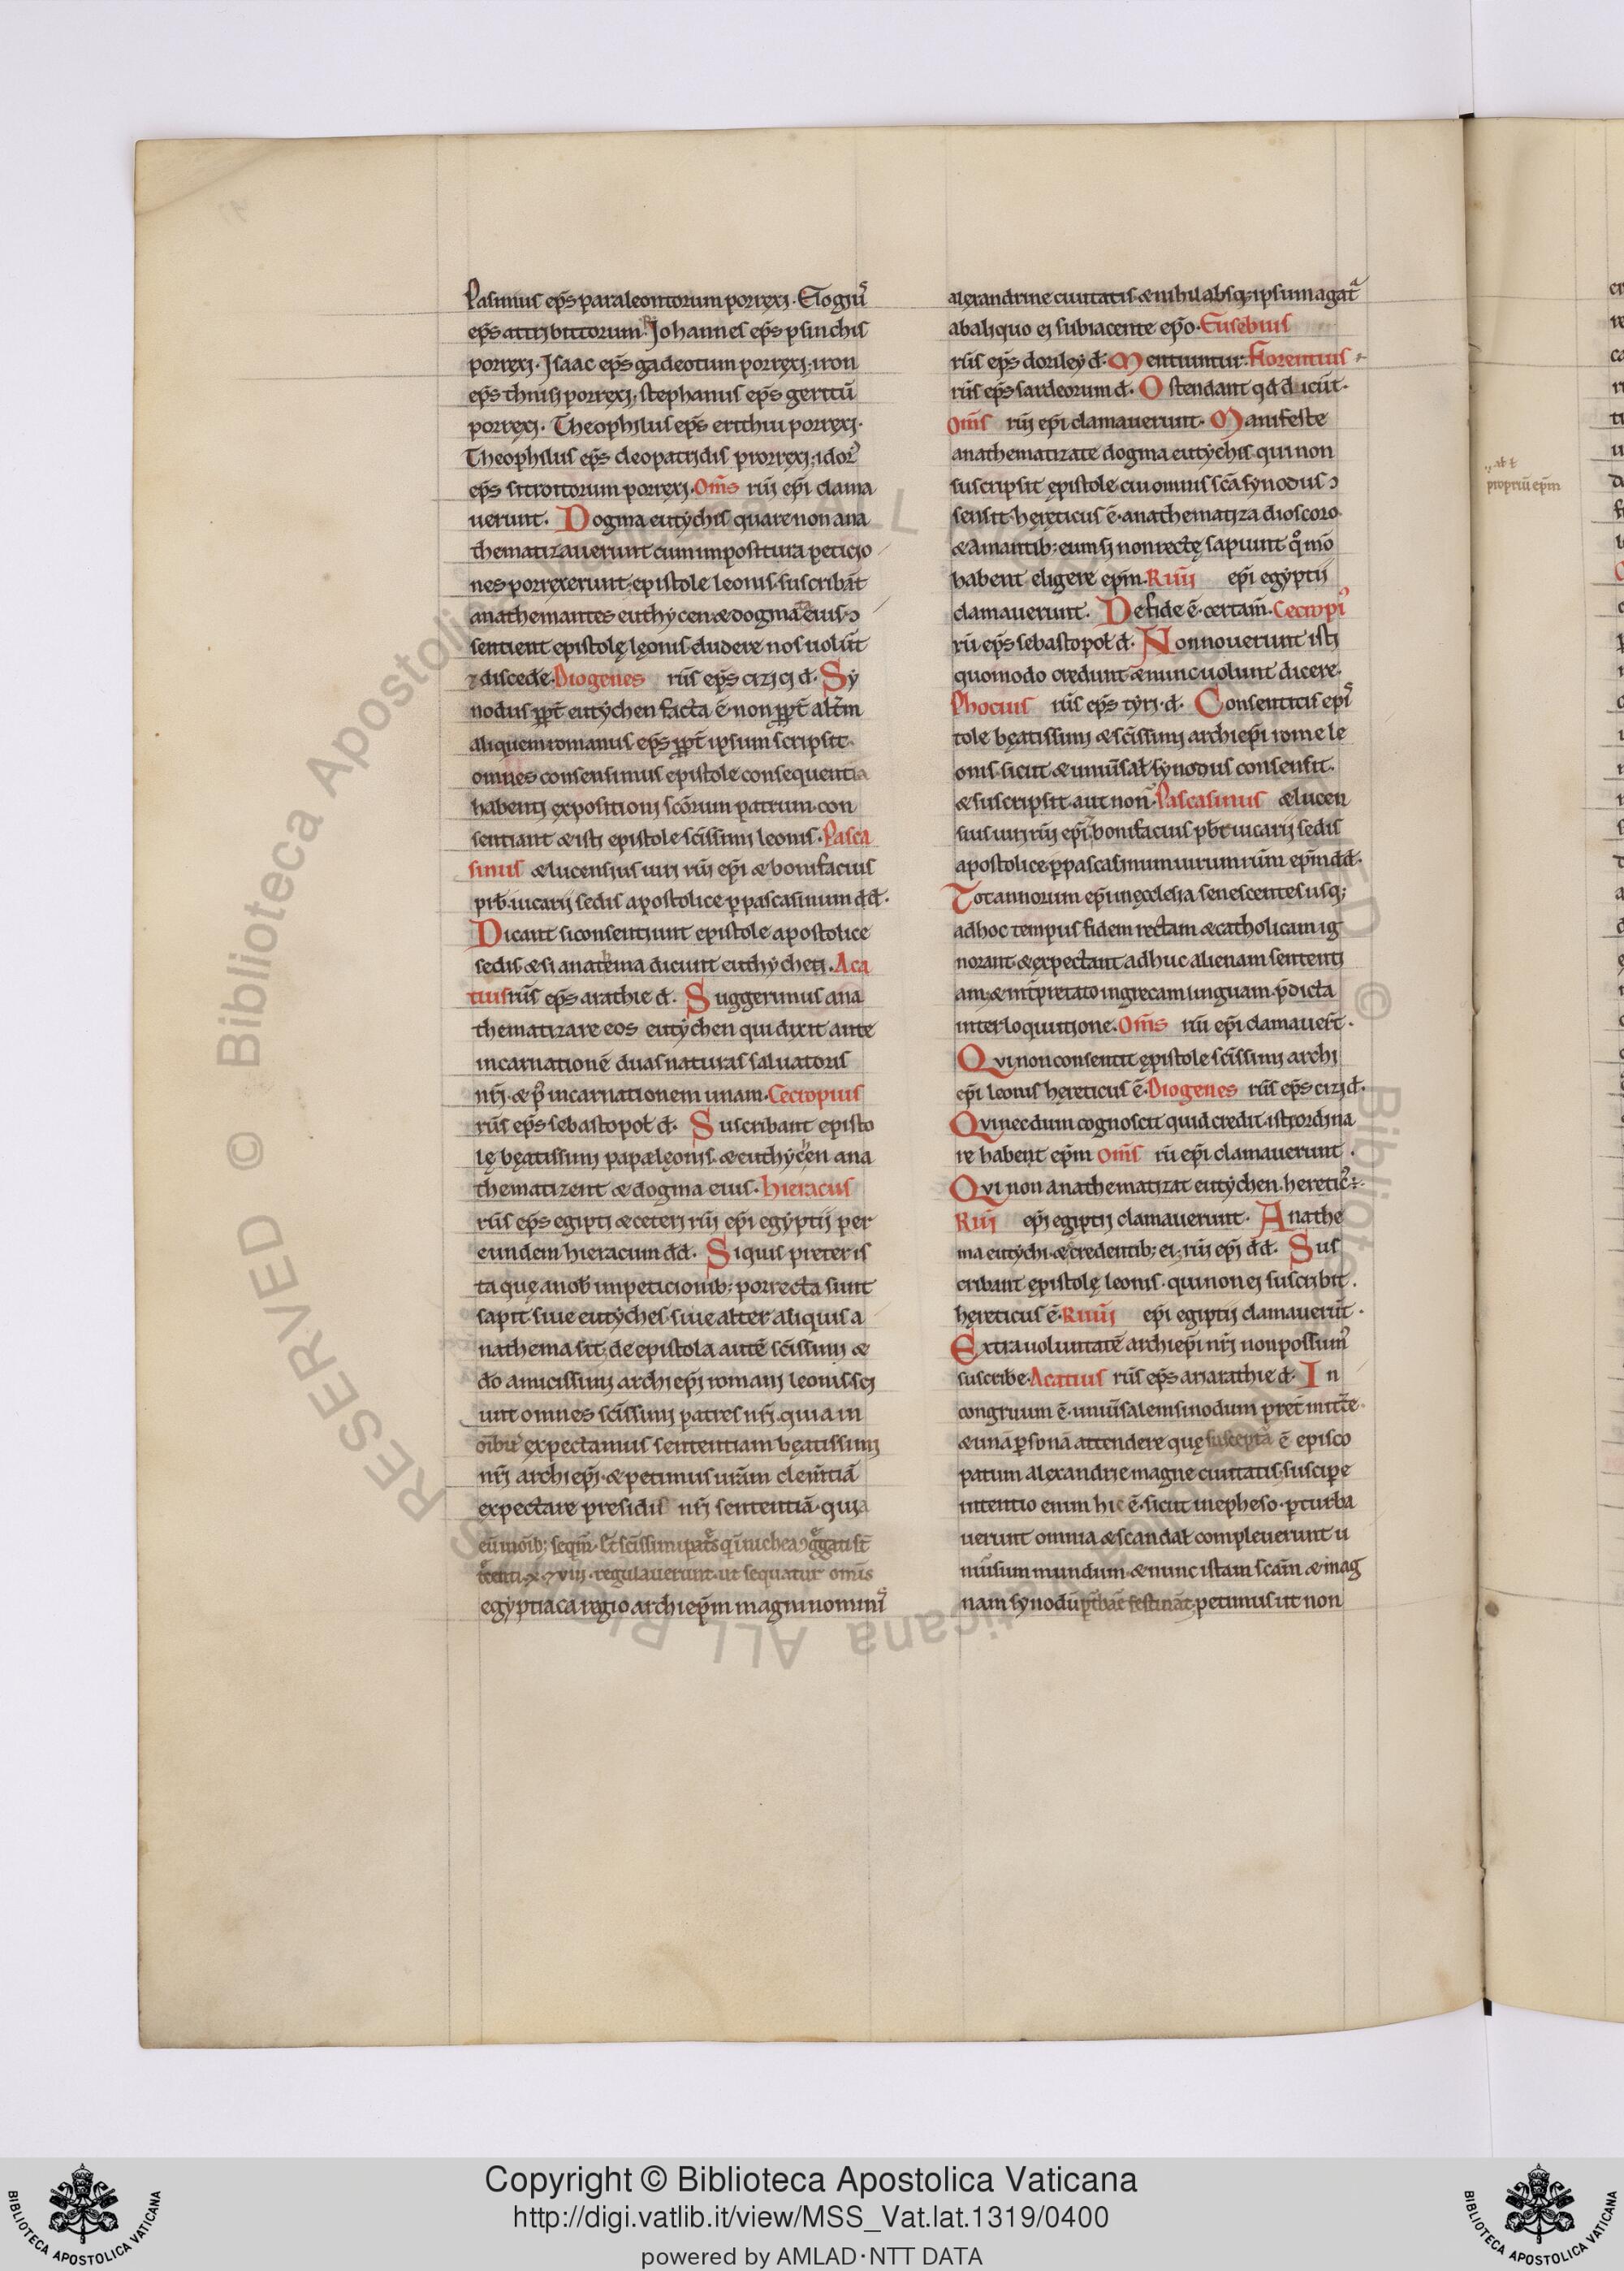 Pasimus ep̄s paraleontorum porrexi. Elogiꝰ
ep̄s attribittorum. Johannes ep̄s psinchis
porrexi. Isaac ep̄s gadeotum porrexi. iron
ep̄s thnisi porrexi. stephanus ep̄s geritū
porrexi. Theophilus ep̄s erithiu porrexi.
Theophilus ep̄s cleopatridis prorrexi. idorꝰ
ep̄s sitrottorum porrexi. Om̄s r̄ui ep̄i clama
uerunt. Dogma eutychis quare non ana
thematizauerunt cum impostura peticio
nes porrexerunt. epistole leonis suscribāt
anathemantes euthycen. & dogma eius ↄ
sentient epistolę lęonis. eludere nos uolūt
& discede. Diogenes rūs ep̄s cizici d̄. Sy
nodus ꝓpt̄ eutychen facta ē. non ꝓpt̄ alt̄m
aliquem romanus ep̄s ꝓpt̄ ipsum scripsit.
omnes consensimus epistole consequentia
habenti expositioni scōrum patrum. con
sentiant & isti epistole sc̄issimi leonis. Pasca
sinus & lucensius uiri r̄ui ep̄i & bonifacius
prb̄. uicarij sedis apostolice ꝑ pascasinum d̄d̄.
Dicant si consentiunt epistole apostolice
sedis & si anatema dicunt euthycheti. Aca
tius rūs ep̄s arathie d̄. Suggerimus ana
thematizare eos eutychen qui dixit ante
incarnationē duas naturas saluatoris
nr̄i. & pꝰ incarnationem unam. Cecropius
rūs ep̄s sebastopoł d̄. Suscribant episto
lę bęatissimi papæ lęonis. & euthycen ana
thematizent & dogma eius. Hieracus
rūs ep̄s egipti & ceteri r̄ui ep̄i egyptij per
eundem hieracum d̄d̄. Siquis preter is
ta quę a nob̄ in peticionib; porrecta sunt
sapit siue eutyches. siue alter aliquis a
nathema sit. de epistola autē sc̄issimi &
do amicissimi archiep̄i romani leonis. sci
unt omnes sc̄issimi patres nr̄i. quia in
oīibꝰ expectamus sententiam bęatissimi
nr̄i archiep̄i. & petimus ur̄am clem̄tiā
expectare presidis nr̄i sententiā. quia
egyptiaca regio archiep̄m magni nominiꝰ
alexandrine ciuitatis. & nihil absq; ipsum agat̄
ab aliquo ei subiacente ep̄o. Eusebius
rūs ep̄s doriley d̄. Mentiuntur. Florentius
rūs ep̄s sardeorum d̄. Ostendant qd̄ dicūt.
Om̄s r̄ui ep̄i clamauerunt. Manifeste
anathematizate dogma eutychis. qui non
suscripsit epistole cui omnis sc̄a synodus ↄ
sensit. heręticus ē. anathematiza dioscoro
& amantib; eum si non rectę sapiunt. q̊mō
habent eligere ep̄m. R̄uij ep̄i egyptij
clamauerunt. De fide ē. certam̄. Cecropiꝰ
r̄u ep̄s sebastopoł d̄. Non nouerunt isti
quomodo credunt & nunc uolunt dicere.
Phocius rūs ep̄s tyri. d̄. Consentitis epi
tole bęatissimi & sc̄issimi archiep̄i rome le
onis. sicut & uniūsał synodus consensit.
& suscripsit aut non. Pascasinus & lucen
sius uiri r̄ui ep̄i. bonifacius pb̄r. uicarij sedis
apostolice. ꝑ pascasinum uirum r̄um ep̄m d̄d̄.
Tot annorum ep̄i in ęcclesia senescentes usq;
ad hoc tempus fidem rectam & catholicam ig
norant & expectant adhuc alienam sententi
am. & int̄pretato in grecam linguam. p̄dicta
interloquutione. Om̄s r̄ui ep̄i clamauer̄t.
Qui non consentit epistole sc̄issimi archi
ep̄i leonis hęreticus ē. Diogenes rūs ep̄s cizi d̄.
Qui necdum cognoscit quid credit. isti ordina
re habent ep̄m Om̄s r̄u ep̄i clamauerunt.
Qui non anathematizat eutychen. heretiꝰ
R̄ui ep̄i egiptij clamauerunt. Anathe
ma eutychi. & credentib; ei. r̄ui ep̄i d̄d̄. Sus
cribant epistolę leonis. qui non ei suscribit.
hęreticus ē. R̄uij ep̄i egiptij clamauerūt.
Extra uoluntatē archiep̄i nr̄i non possumꝰ
suscribe. Acatius rūs ep̄s ariarathie d̄. In
congruum ē. uniūsalem sinodum pret̄mitt̄e.
& unā ꝑsonā attendere quę suscepta ē episco
patum alexandrie magne ciuitatis. suscipe
intentio enim hic ē. sicut in epheso. ꝑturba
uerunt omnia & scandał compleuerunt u
niūsum mundum. & nunc istam scam̄ & mag
nam synodū petimus ut non
propriū ep̄m
Copyright © Biblioteca Apostolica Vaticana
http://digi.vatlib.it/view/MSS_Vat.lat.1319/0400
powered by AMLAD·NTT DATA
BIBLIOTECA APOSTOLICA VATICANA
BIBLIOTECA APOSTOLICA VATICANA